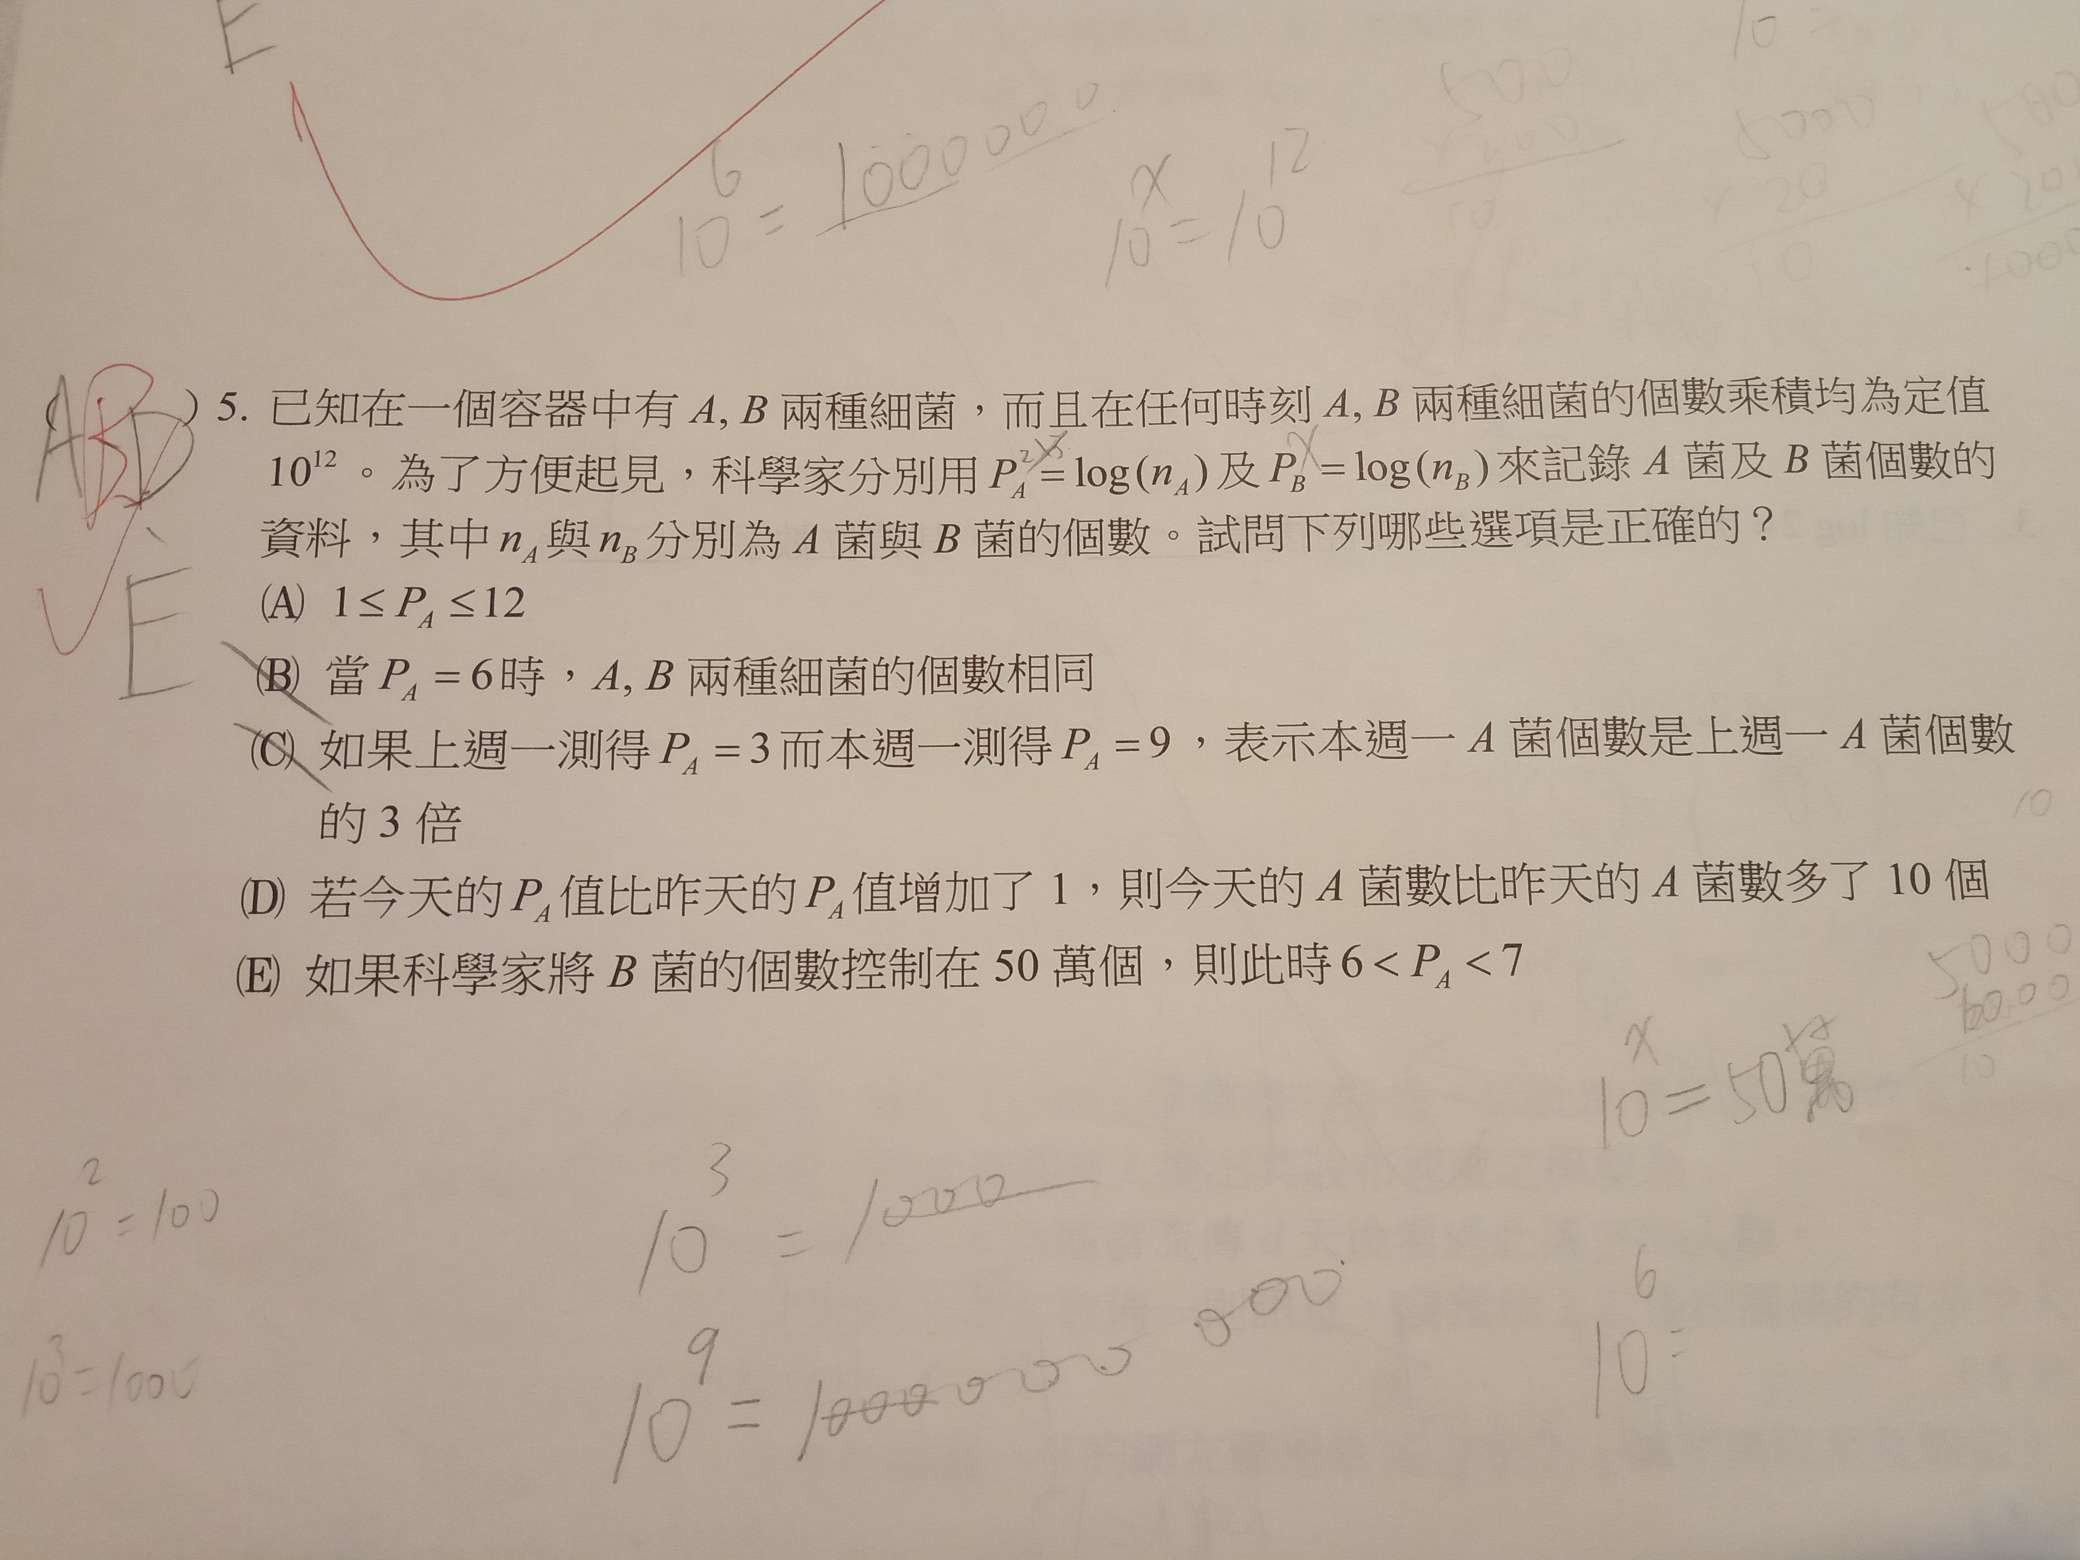 E
10⁶ = 1000000
10ˣ = 10¹²
500
10 =
5000
× 20
10
ABD
E
( ) 5. 已知在一個容器中有 A, B 兩種細菌，而且在任何時刻 A, B 兩種細菌的個數乘積均為定值
10¹² 。為了方便起見，科學家分別用 P_A = log(n_A) 及 P_B = log(n_B) 來記錄 A 菌及 B 菌個數的
資料，其中 n_A 與 n_B 分別為 A 菌與 B 菌的個數。試問下列哪些選項是正確的？
(A) 1 ≤ P_A ≤ 12
(B) 當 P_A = 6 時，A, B 兩種細菌的個數相同
(C) 如果上週一測得 P_A = 3 而本週一測得 P_A = 9 ，表示本週一 A 菌個數是上週一 A 菌個數
的 3 倍
(D) 若今天的 P_A 值比昨天的 P_A 值增加了 1，則今天的 A 菌數比昨天的 A 菌數多了 10 個
(E) 如果科學家將 B 菌的個數控制在 50 萬個，則此時 6 < P_A < 7
10
5000
10ˣ = 50萬
10
10² = 100
10³ = 1000
10³ = 1000
10⁹ = 1000000000
10⁶ =